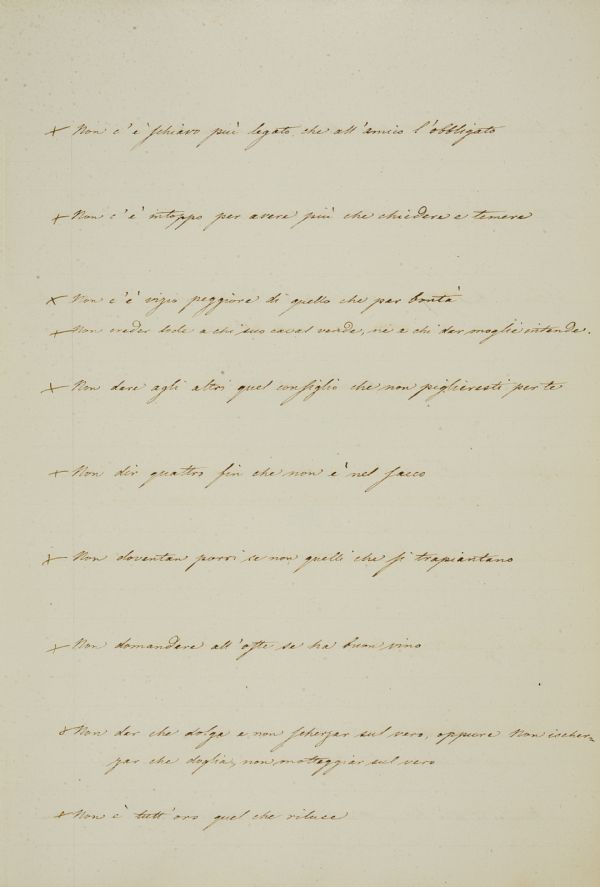 × Non c'è schiavo più legato, che all'amico l'obbligato
× Non c'è intoppo per avere più che chiedere e temere
× Non c'è vizio peggiore di quello che par bontà
× Non creder lode a chi suo caval vende, nè a chi dar moglie intende.
× Non dare agli altri quel consiglio che non piglieresti per te
× Non dir quattro fin che non è nel sacco
× Non doventan porri se non quelli che si trapiantano
× Non domandare all'oste se ha buon vino
× Non dar che dolga e non scherzar sul vero, oppure Non ischer-
zar che doglia, non motteggiar sul vero
× Non è tutt'oro quel che riluce